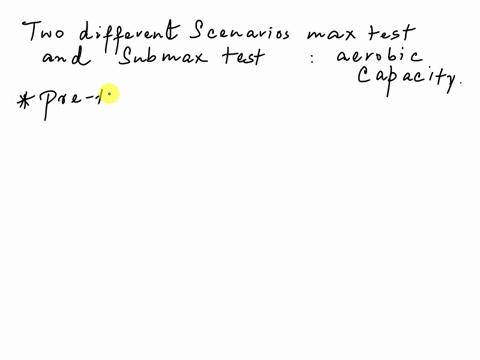 Two different Scenarios max test
and Submax test : aerobic
Capacity.
* Pre-t